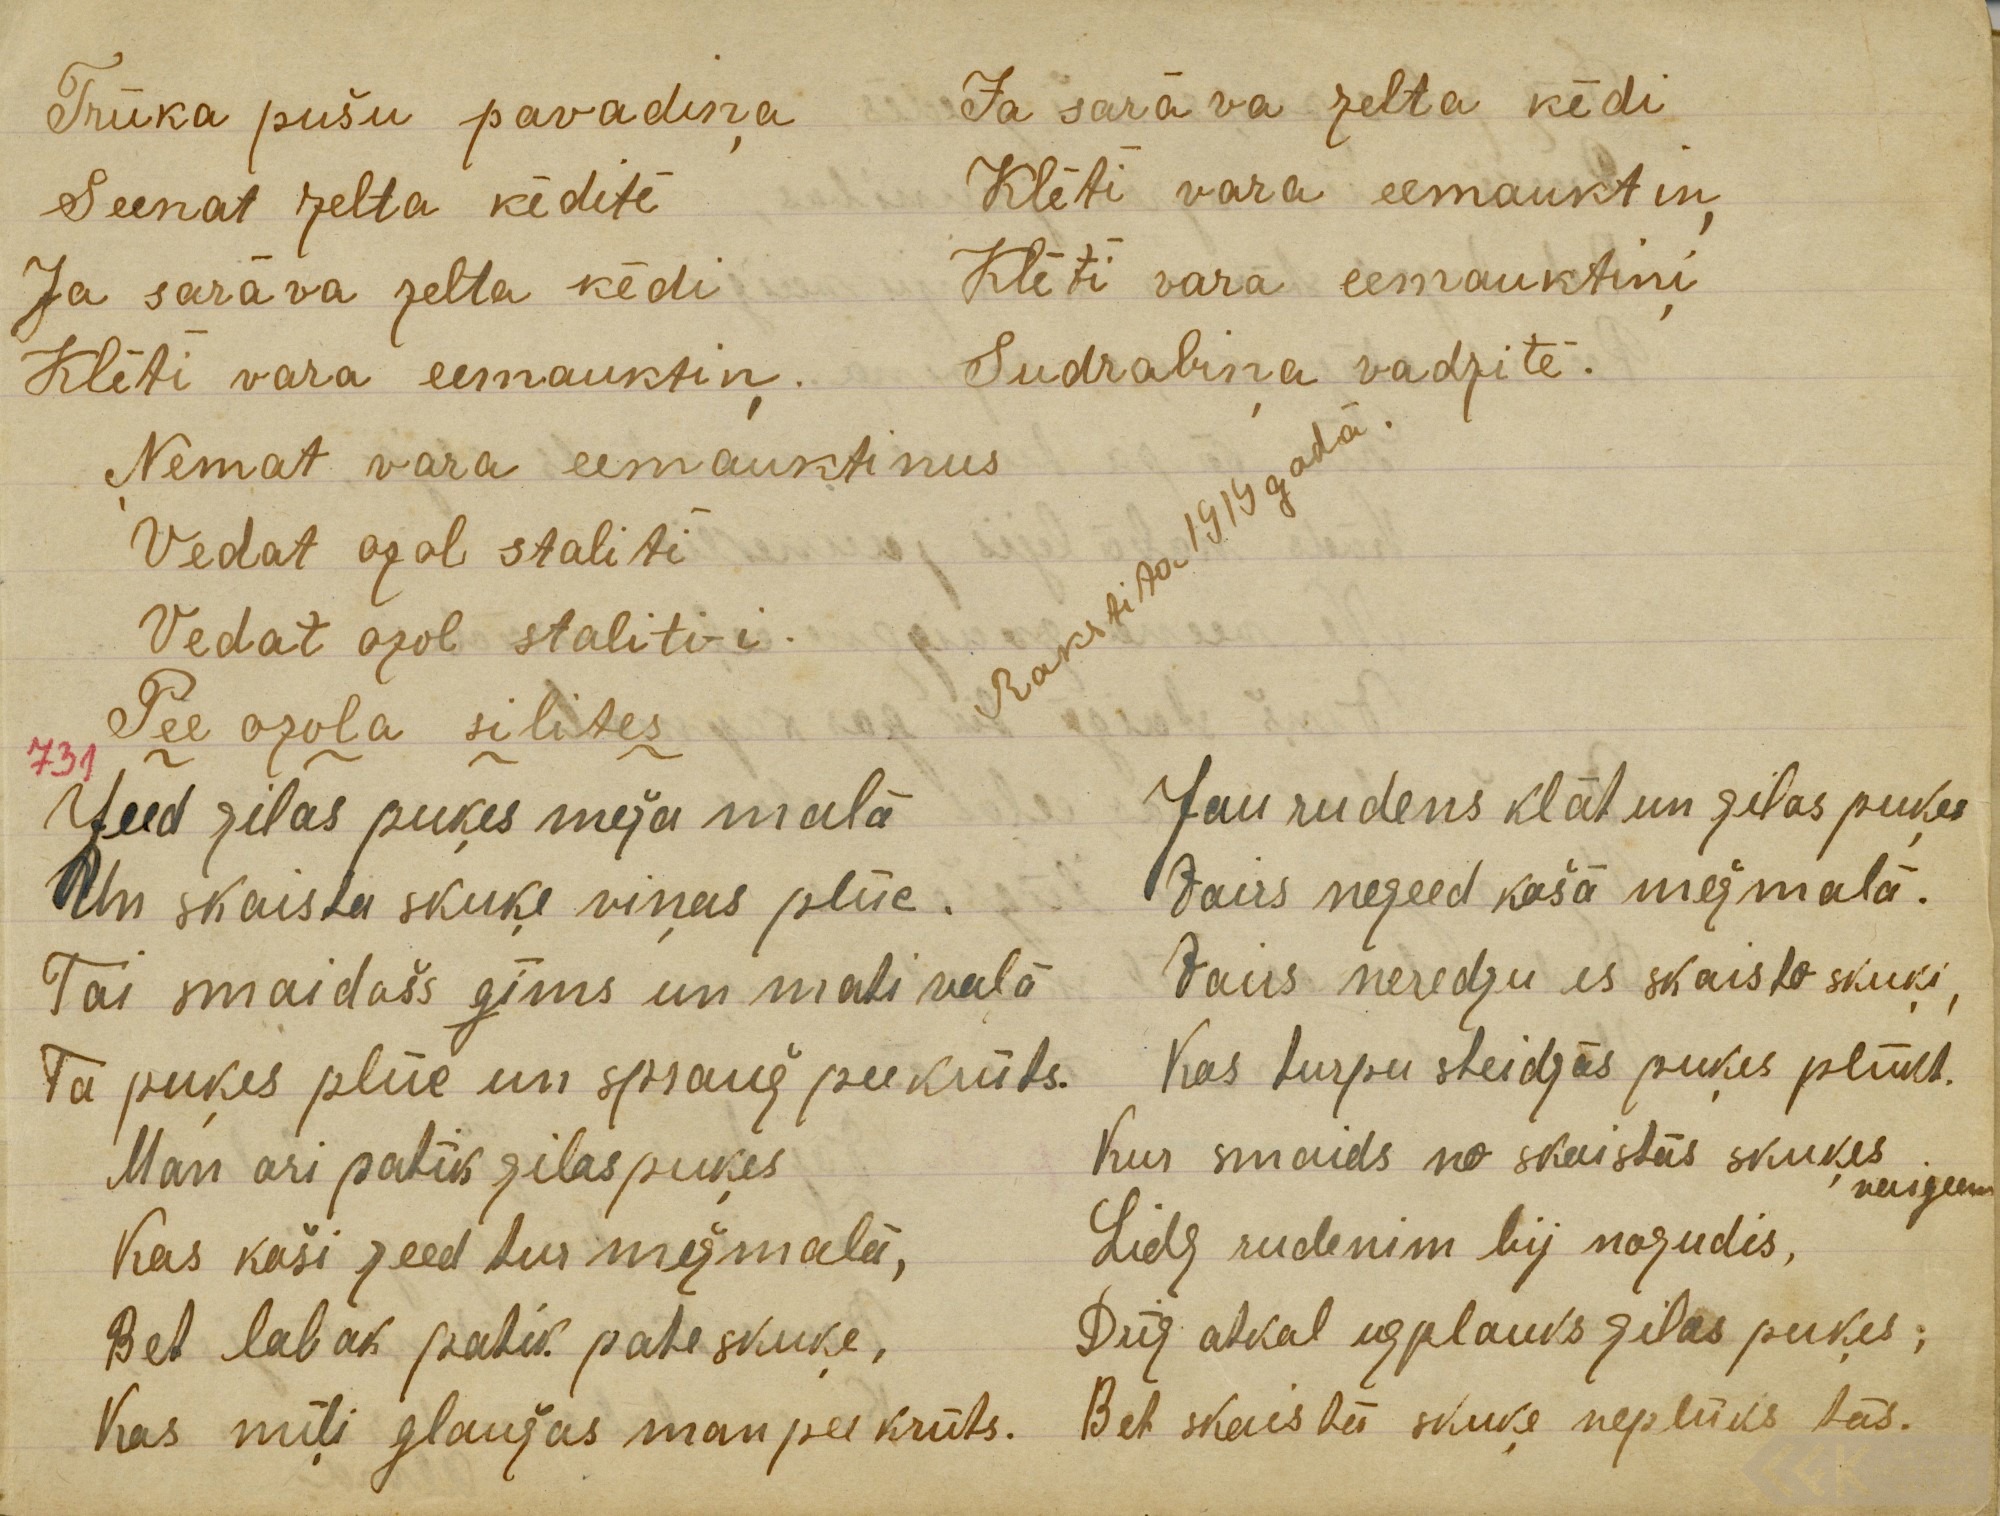 Trūka pušu pavadiņa
Seenat zelta ķēditē
Ja sarāva zelta ķēdi
Klētī vara eemauktiņ.
Ņemat vara eemauktinus
Vedat ozol stalitī
Vedat ozol staliti-i.
Pee ozola silites
Ja sarāva zelta kēdi
Klētī vara eemauktiņ
Klētī vara eemauktiņi
Sudrabiņa vadzitē.
Rakstita 1919 gadā.
731
Zeed zilas puķes meža malā
Un skaista skuķe viņas plūc.
Tai smaidošs ģīms un mati vaļā
Tā puķes plūc un sprauž pee krūts.
Man ari patīk zilas puķes
Kas koši zeed tur mežmalā,
Bet labak patīk pate skuķe,
Kas mīļi glaužas man pee krūts.
Jau rudens klāt un zilas puķes
Vairs nezeed košā mežmalā.
Vairs neredzu es skaisto skuķi,
Kas turpu steidzās puķes plūkt.
Kur smaids no skaistās skuķes
vaigeem
Lidz rudenim bij nozudis,
Drīz atkal uzplauks zilas puķes;
Bet skaistā skuķe neplūks tās.